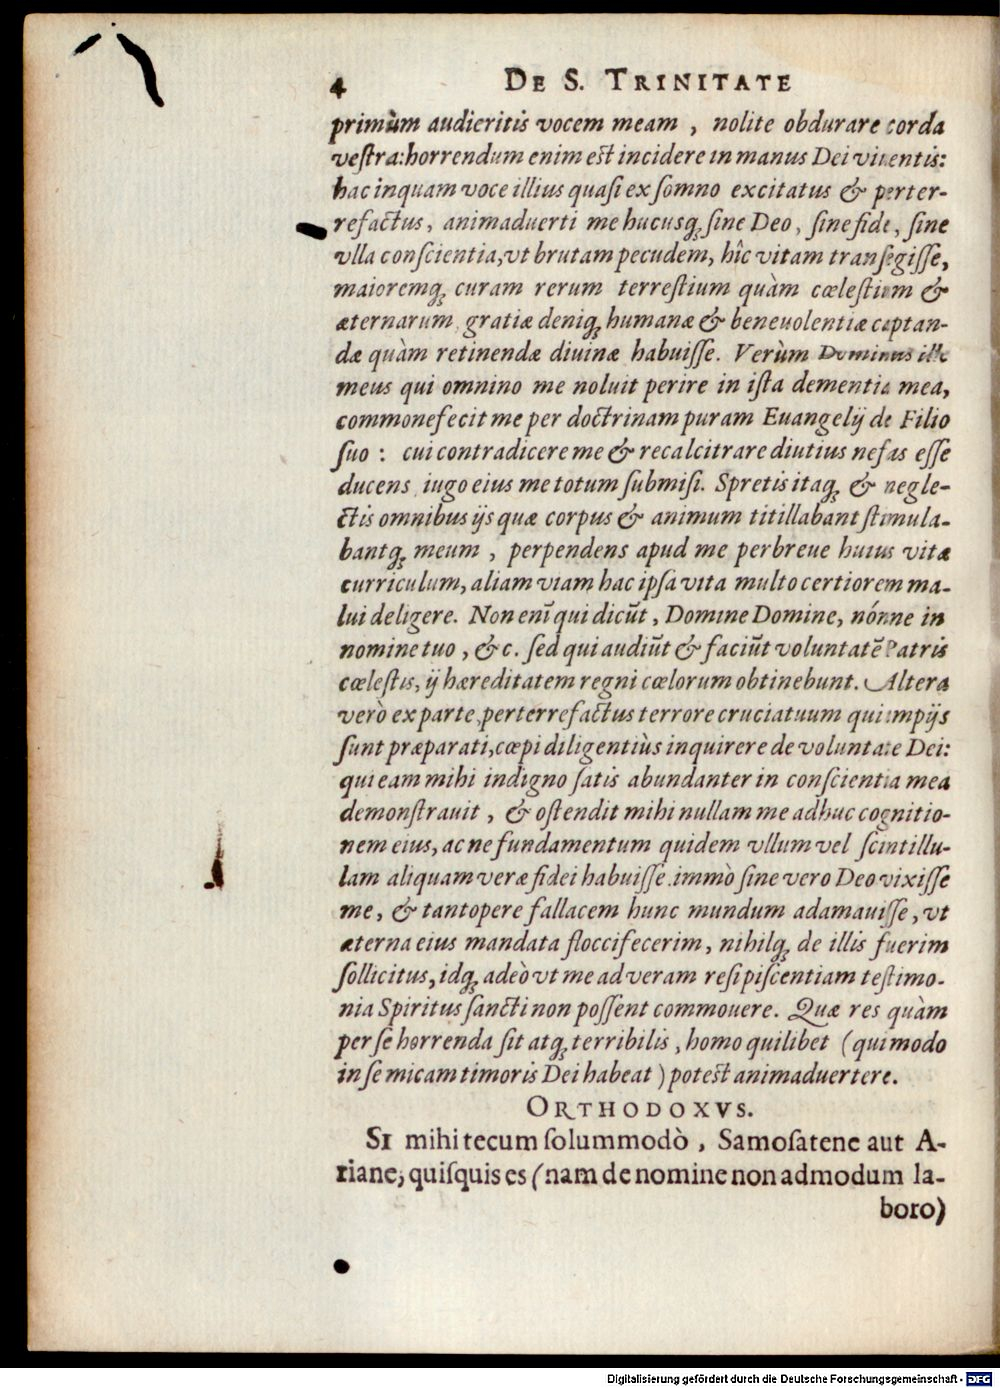 4 DE S. TRINITATE
primùm audieritis vocem meam , nolite obdurare corda
veſtra: horrendum enim eſt incidere in manus Dei viuentis:
hac inquam voce illius quaſi ex ſomno excitatus & perter-
refactus, animaduerti me hucusq́; ſine Deo, ſine fide, ſine
vlla conſcientia, vt brutam pecudem, hîc vitam tranſegiſſe,
maioremq́; curam rerum terreſtium quàm cœleſtium &
æternarum, gratiæ deniq́; humanæ & beneuolentiæ captan-
dæ quàm retinendæ diuinæ habuiſſe. Verùm Dominus ille
meus qui omnino me noluit perire in iſta dementia mea,
commonefecit me per doctrinam puram Euangelij de Filio
ſuo : cui contradicere me & recalcitrare diutius nefas eſſe
ducens, iugo eius me totum ſubmiſi. Spretis itaq́; & negle-
ctis omnibus ijs quæ corpus & animum titillabant ſtimula-
bantq́; meum , perpendens apud me perbreue huius vitæ
curriculum, aliam viam hac ipſa vita multo certiorem ma-
lui deligere. Non enī qui dicūt, Domine Domine, nónne in
nomine tuo , & c. ſed qui audiūt & faciūt voluntatē Patris
cœleſtis, ij hæreditatem regni cœlorum obtinebunt. Altera
verò ex parte, perterrefactus terrore cruciatuum qui impijs
ſunt præparati, cœpi diligentiùs inquirere de voluntate Dei:
qui eam mihi indigno ſatis abundanter in conſcientia mea
demonſtrauit , & oſtendit mihi nullam me adhuc cognitio-
nem eius, ac ne fundamentum quidem vllum vel ſcintillu-
lam aliquam veræ fidei habuiſſe, immò ſine vero Deo vixiſſe
me, & tantopere fallacem hunc mundum adamauiſſe, vt
æterna eius mandata floccifecerim, nihilq́; de illis fuerim
ſollicitus, idq́; adeò vt me ad veram reſipiſcentiam teſtimo-
nia Spiritus ſancti non poſſent commouere. Quæ res quàm
per ſe horrenda ſit atq́; terribilis , homo quilibet (qui modo
in ſe micam timoris Dei habeat ) poteſt animaduertere.
ORTHODOXVS.
SI mihi tecum ſolummodò , Samoſatene aut A-
riane, quiſquis es (nam de nomine non admodum la-
boro)
Digitalisierung gefördert durch die Deutsche Forschungsgemeinschaft - DFG